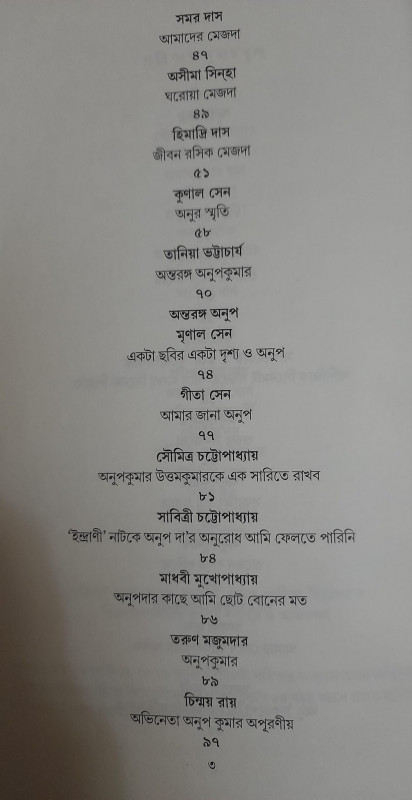 সমর দাস
আমাদের মেজদা
৪৭
অসীমা সিন্‌হা
ঘরোয়া মেজদা
৪৯
হিমাদ্রি দাস
জীবন রসিক মেজদা
৫১
কুণাল সেন
অনুর স্মৃতি
৫৮
তানিয়া ভট্টাচার্য
অন্তরঙ্গ অনুপকুমার
৭০
অন্তরঙ্গ অনুপ
মৃণাল সেন
একটা ছবির একটা দৃশ্য ও অনুপ
৭৪
গীতা সেন
আমার জানা অনুপ
৭৭
সৌমিত্র চট্টোপাধ্যায়
অনুপকুমার উত্তমকুমারকে এক সারিতে রাখব
৮১
সাবিত্রী চট্টোপাধ্যায়
‘ইন্দ্রাণী’ নাটকে অনুপ দা’র অনুরোধ আমি ফেলতে পারিনি
৮৪
মাধবী মুখোপাধ্যায়
অনুপদার কাছে আমি ছোট বোনের মত
৮৬
তরুণ মজুমদার
অনুপকুমার
৮৯
চিন্ময় রায়
অভিনেতা অনুপ কুমার অপূরণীয়
৯৭
৩